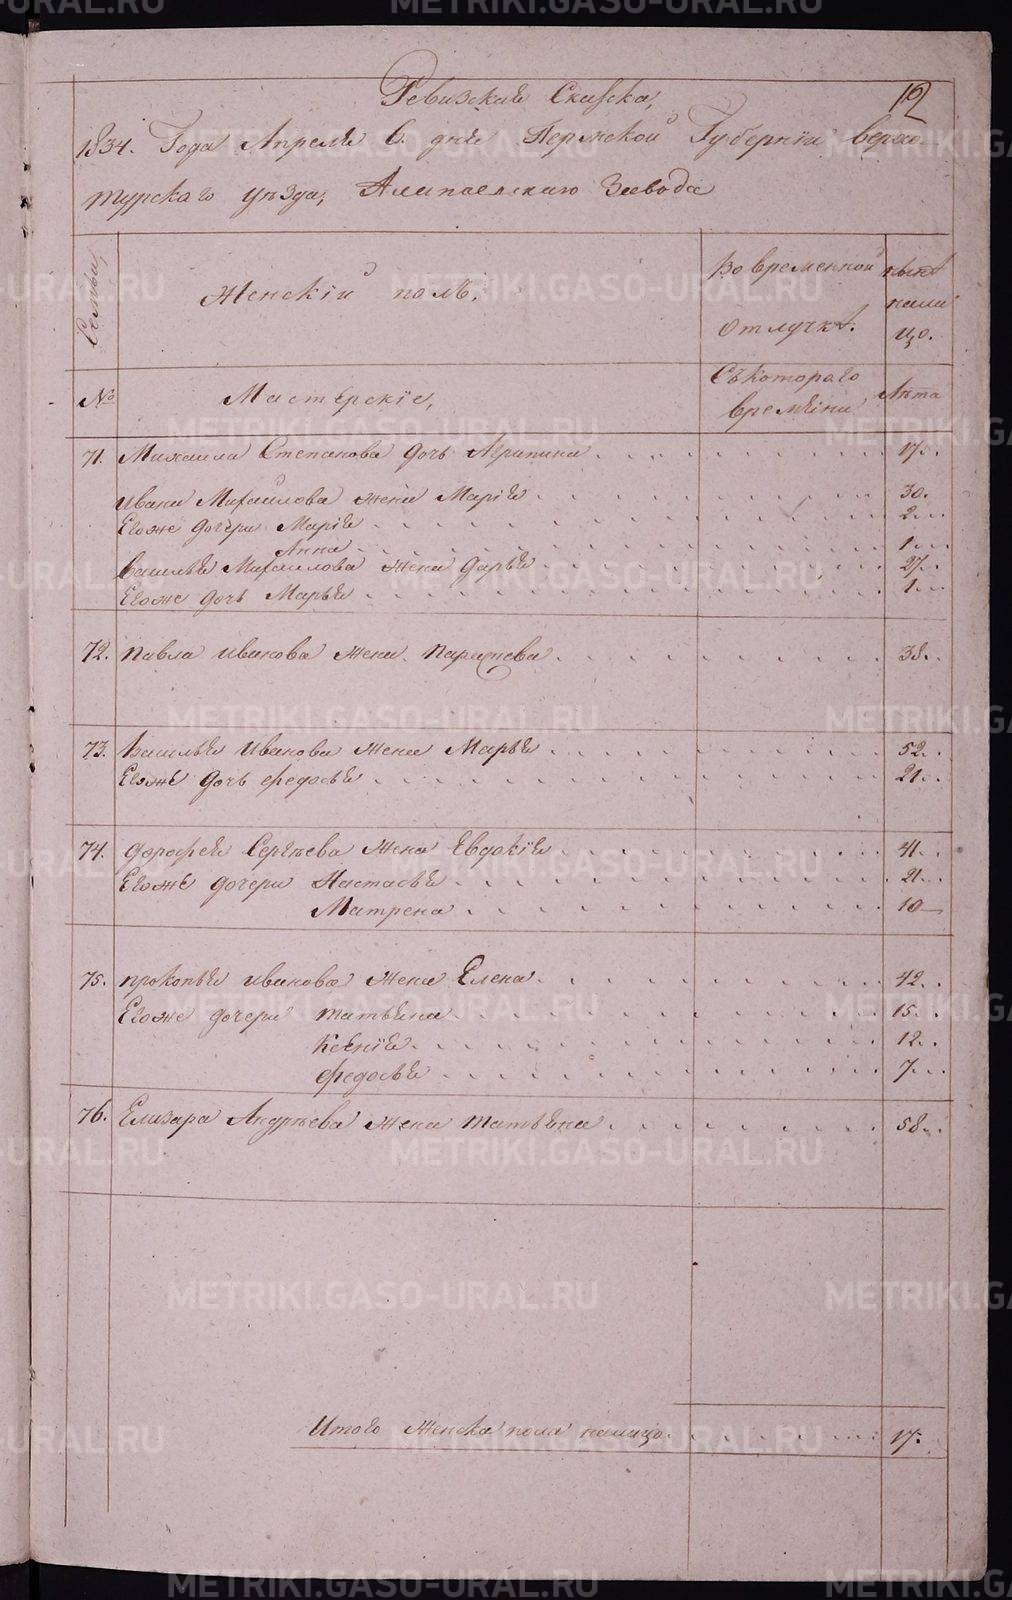 Ревизская Сказка,
12
1834. Года Апреля 6. дня Пермской Губернiи верхо
турскаго уѣзда, Алапаевскаго Завода
Семьи,
Женскiй полъ,
Во временной
отлучкѣ.
нынѣ
нали
цо.
№
Мастерскiе,
Съкотораго
времѣни
Лѣта
71. Михаила Степанова дочь Агрипина 17.
Ивана Михаилова жена Марiя 30.
Егоже дочери Марiя 2
Анна 1
Василья Михаилова жена Дарья 27
Егоже дочь Марья 1
72. Павла Иванова жена Парасковья 38.
73. Василья Иванова жена Марья 52.
Егоже дочь Федосья 21
74. Дорофея Сергѣева жена Евдокiя 41
Егоже дочери Настасья 21
Матрена 10
75. Прокопья Иванова жена Елена 42
Егоже дочери Татьяна 15
Ксѣнiя 12
Федосья 7
76. Елизара Андрѣева жена Татьяна 58
Итого женска пола налицо 17.
METRIKI.GASO-URAL.RU